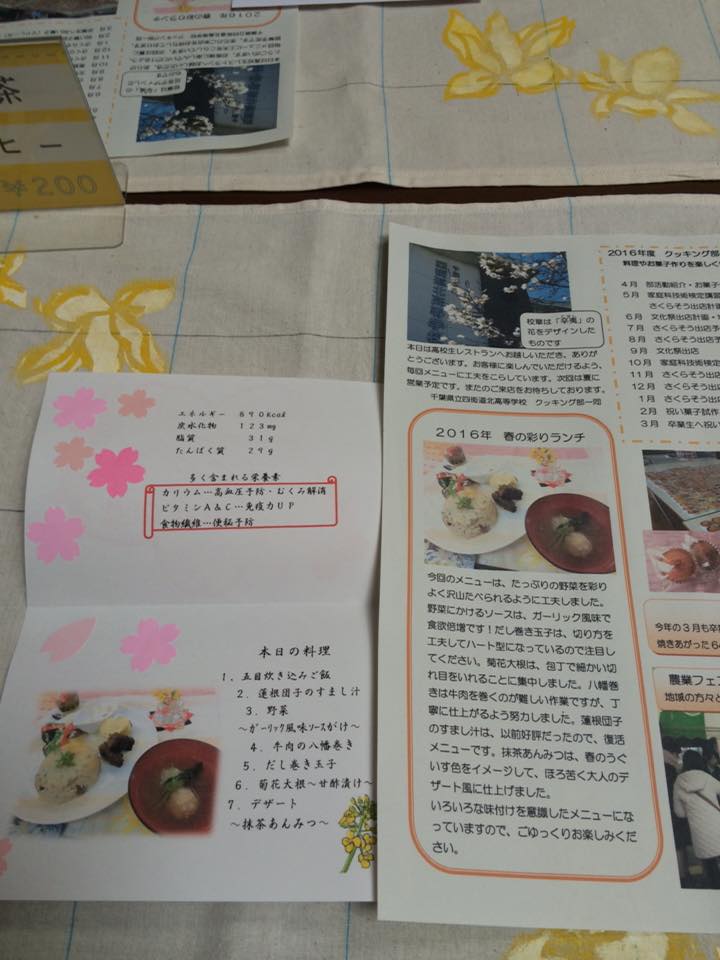 茶
ヒー
￥200
2016年 春の彩りランチ
エネルギー 690kcal
炭水化物 123mg
脂質 31g
たんぱく質 29g
多く含まれる栄養素
カリウム…高血圧予防・むくみ解消
ビタミンA&C…免疫力UP
食物繊維…便秘予防
本日の料理
1. 五目炊き込みご飯
2. 蓮根団子のすまし汁
3. 野菜
～ガーリック風味ソースがけ～
4. 牛肉の八幡巻き
5. だし巻き玉子
6. 菊花大根～甘酢漬け～
7. デザート
～抹茶あんみつ～
校章は「辛夷」の
花をデザインした
ものです
本日は高校生レストランへお越しいただき、ありが
とうございます。お客様に楽しんでいただけるよう、
毎回メニューに工夫をこらしています。次回は夏に
営業予定です。またのご来店をお待ちしております。
千葉県立四街道北高等学校 クッキング部一同
2016年 春の彩りランチ
今回のメニューは、たっぷりの野菜を彩り
よく沢山たべられるように工夫しました。
野菜にかけるソースは、ガーリック風味で
食欲倍増です！だし巻き玉子は、切り方を
工夫してハート型になっているので注目し
てください。菊花大根は、包丁で細かい切
れ目をいれることに集中しました。八幡巻
きは牛肉を巻くのが難しい作業ですが、丁
寧に仕上がるよう努力しました。蓮根団子
のすまし汁は、以前好評だったので、復活
メニューです。抹茶あんみつは、春のうぐ
いす色をイメージして、ほろ苦く大人のデ
ザート風に仕上げました。
いろいろな味付けを意識したメニューにな
っていますので、ごゆっくりお楽しみくだ
さい。
2016年度 クッキング部
料理やお菓子作りを楽しく
4月 部活動紹介・お菓子
5月 家庭科技術検定講習
さくらそう出店計画
6月 文化祭出店計画・
7月 さくらそう出店予
8月 さくらそう出店
9月 文化祭出店
10月 家庭科技術検定
11月 さくらそう出店
12月 さくらそう出店
1月 さくらそう出店
2月 祝い菓子試作
3月 卒業生へ祝い
今年の3月も卒
焼きあがった6
農業フェス
地域の方々と